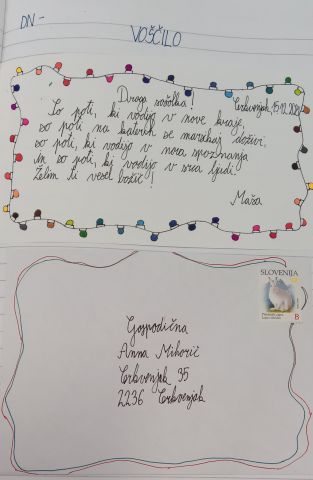 DN -
VOŠČILO
Draga soseska! Cerkvenjak, 15.12.2021
So poti, ki vodijo v nove kraje,
so poti na katerih se marsikaj doživi.
so poti, ki vodijo v nova spoznanja
in so poti, ki vodijo v srca ljudi.
Želim ti vesel božič!
Maša
SLOVENIJA
B
Gospodična
Anna Mihorič
Cerkvenjak 35
2236 Cerkvenjak